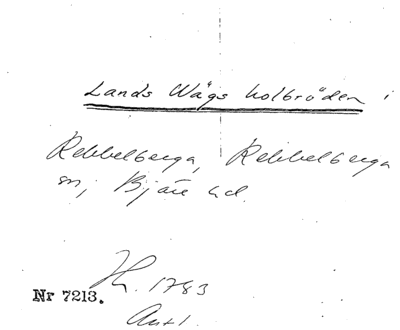 Lands Wägs holbröden i
Rebbelberga, Rebbelberga
sn, Bjäre hd.
Nr 7213.
1783